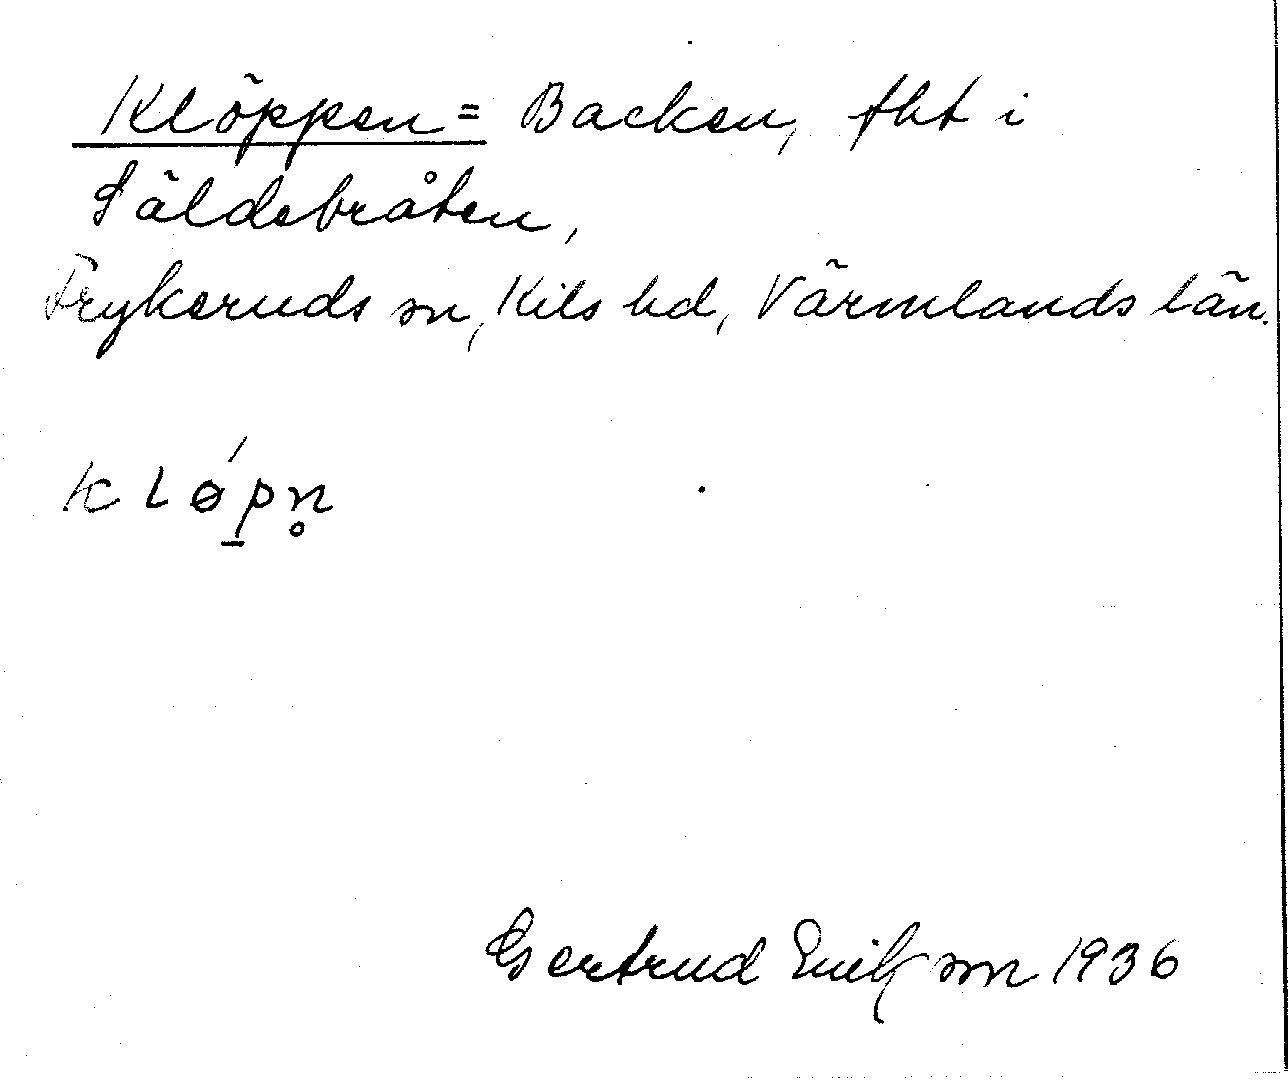 Klöppen = Backen, fht i
Säldebråten,
Frykeruds sn, Kils hd, Värmlands län.
K L ǿ p n̥
Gertrud Erikson 1936